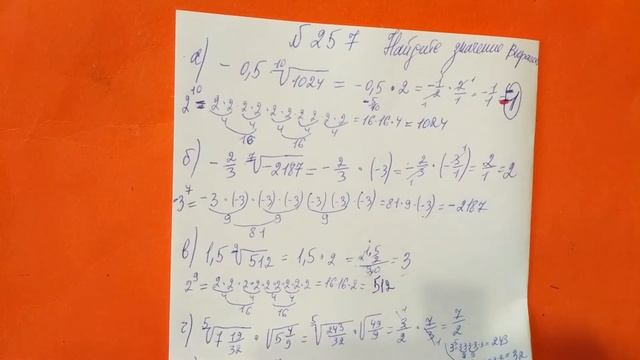 № 257 Найдите значение выраж
а) - 0,5 ¹⁰√1024 = -0,5 · 2 = -1/2 · 2/1 = -1/1 = -1
2¹⁰ = 2·2·2·2·2·2·2·2·2·2 = 16·16·4 = 1024
4 4 4 4
16 16
б) - 2/3 ⁷√-2187 = - 2/3 · (-3) = -2/3 · (-3/1) = 2/1 = 2
-3⁷ = -3·(-3)·(-3)·(-3)(-3)(-3)·(-3) = 81·9·(-3) = -2187
9 9 9
81
в) 1,5 ⁹√512 = 1,5 · 2 = 1,5 2 3,0 = 3
2⁹ = 2·2·2·2·2·2·2·2·2 = 16·16·2 = 512
4 4 4 4
16 16
г) ⁵√7 19/32 · √5 4/9 = ⁵√243/32 · √49/9 = 3/2 · 7/3 = 7/2
3⁵ 3·3·3·3·3 = 243